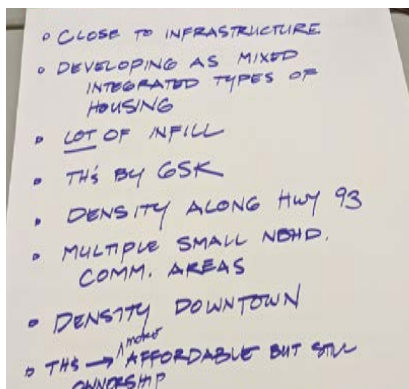 • CLOSE TO INFRASTRUCTURE
• DEVELOPING AS MIXED
INTEGRATED TYPES OF
HOUSING
• LOT OF INFILL
• TH'S BY GSK
• DENSITY ALONG HWY 93
• MULTIPLE SMALL NBHD.
COMM. AREAS
• DENSITY DOWNTOWN
• THS → AFFORDABLE BUT STILL
OWNERSHIP